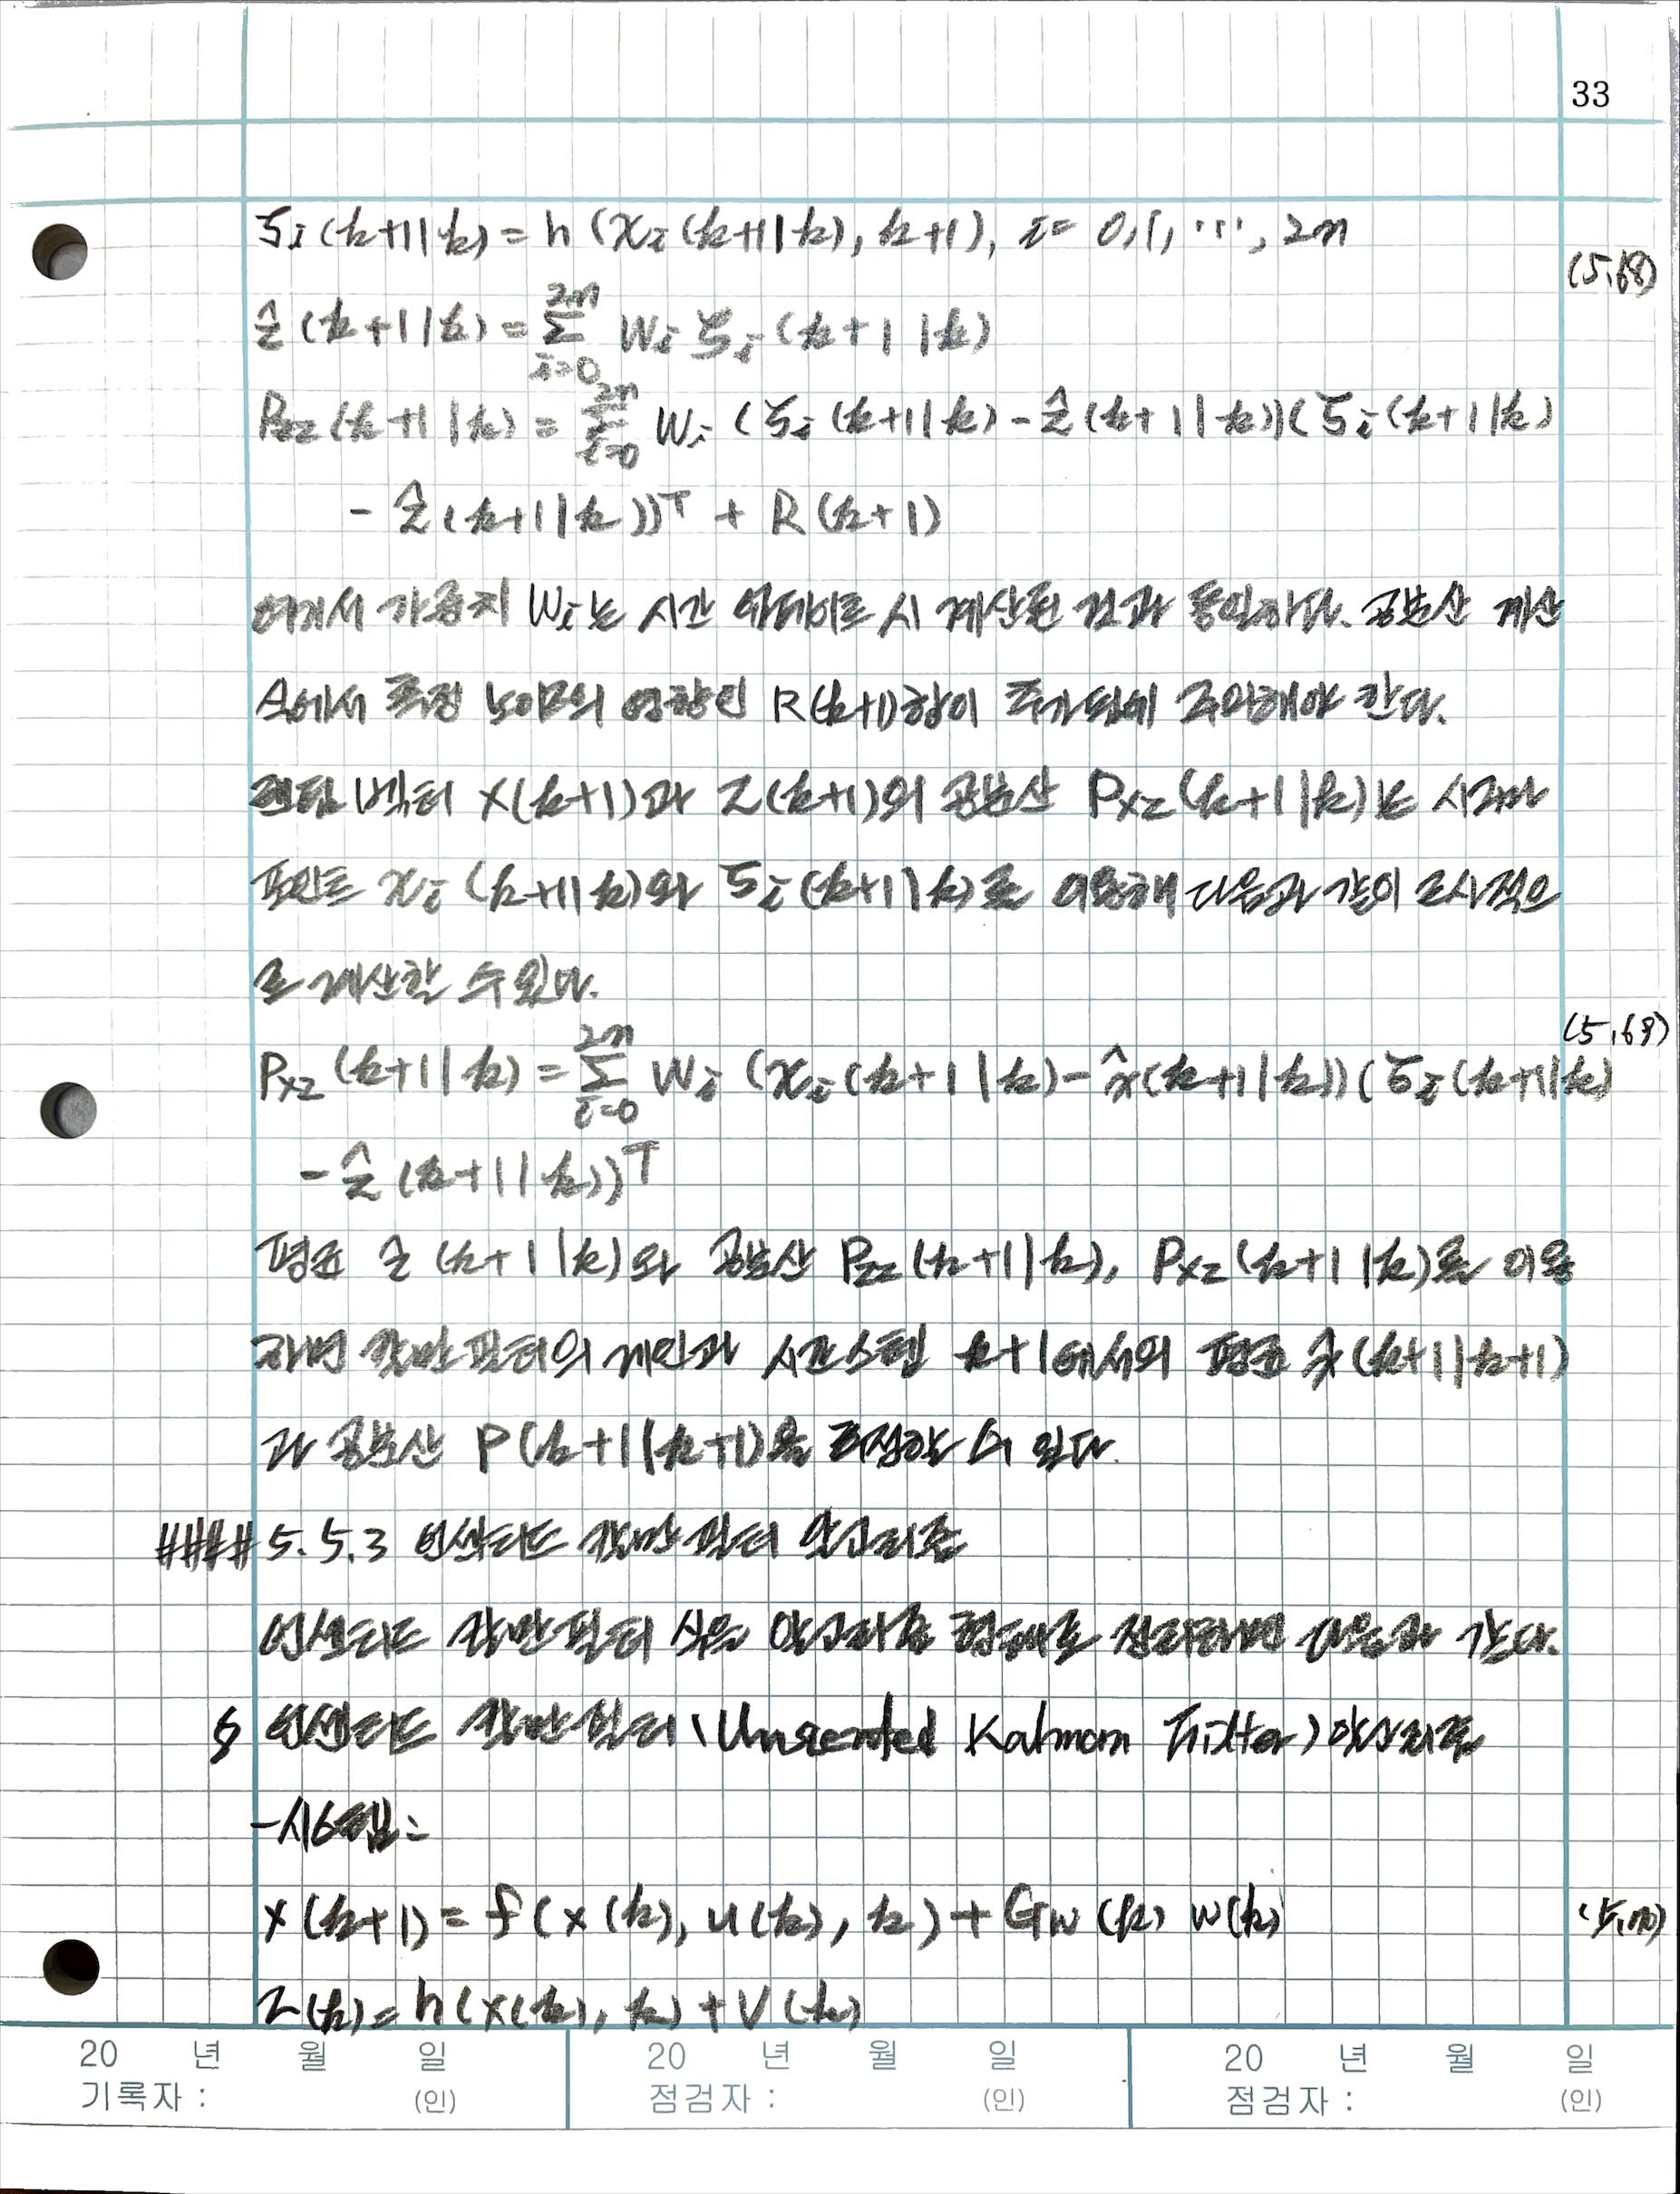 33
ζᵢ(k+1|k) = h(χᵢ(k+1|k), k+1), i = 0, 1, ⋯, 2n
(5.68)
ẑ(k+1|k) = Σ_{i=0}^{2n} Wᵢ ζᵢ(k+1|k)
P_zz(k+1|k) = Σ_{i=0}^{2n} Wᵢ (ζᵢ(k+1|k) - ẑ(k+1|k))(ζᵢ(k+1|k)
- ẑ(k+1|k))ᵀ + R(k+1)
여기서 가중치 Wᵢ는 시간 업데이트 시 계산된 것과 동일하다. 공분산 계산
식에서 측정 노이즈의 영향인 R(k+1)항이 추가됨에 주의해야 한다.
랜덤 벡터 x(k+1)과 z(k+1)의 공분산 P_xz(k+1|k)는 시그마
포인트 χᵢ(k+1|k)와 ζᵢ(k+1|k)를 이용해 다음과 같이 근사적으
로 계산할 수 있다.
(5.69)
P_xz(k+1|k) = Σ_{i=0}^{2n} Wᵢ (χᵢ(k+1|k) - x̂(k+1|k))(ζᵢ(k+1|k)
- ẑ(k+1|k))ᵀ
평균 ẑ(k+1|k)와 공분산 P_zz(k+1|k), P_xz(k+1|k)를 이용
하면 칼만 필터의 게인과 시간스텝 k+1에서의 평균 x̂(k+1|k+1)
과 공분산 P(k+1|k+1)을 추정할 수 있다.
#### 5.5.3 언센티드 칼만 필터 알고리즘
언센티드 칼만 필터 식을 알고리즘 형태로 정리하면 다음과 같다.
§ 언센티드 칼만 필터(Unscented Kalman Filter) 알고리즘
- 시스템:
x(k+1) = f(x(k), u(k), k) + G_w(k) w(k)
(5.70)
z(k) = h(x(k), k) + v(k)
20 년 월 일 20 년 월 일 20 년 월 일
기록자 : (인) 점검자 : (인) 점검자 : (인)